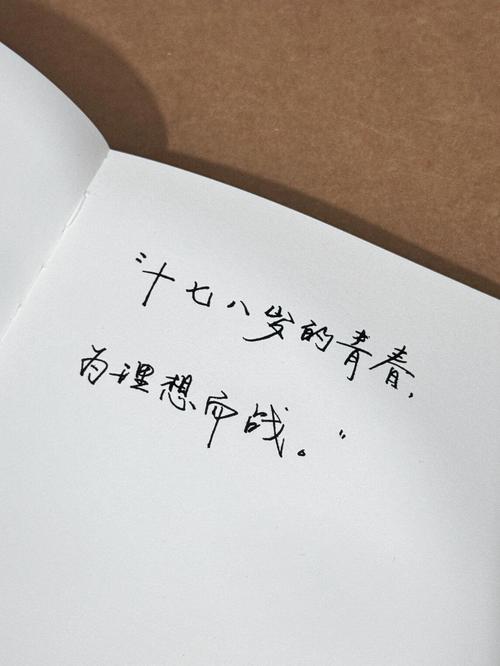 “十七八岁的青春,
为理想而战。”